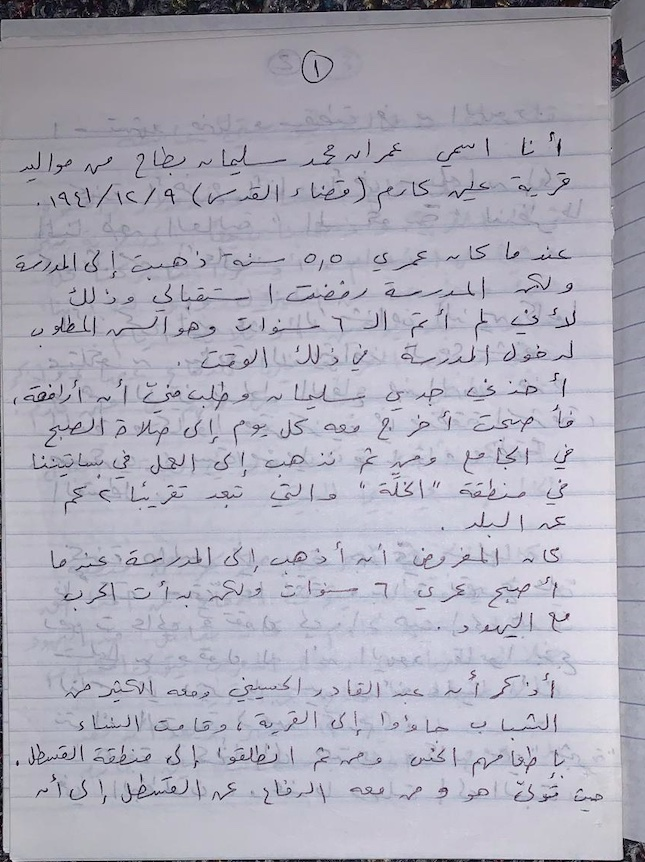 ١
أنا اسمي عمران محمد سليمان بطاح من مواليد
قرية عين كارم (قضاء القدس) ١٩٤١/١٢/٩.
عند ما كان عمري ٥,٥ سنة ذهبت إلى المدرسة
ولكن المدرسة رفضت استقبالي وذلك
لأني لم أتم الـ ٦ سنوات وهو السن المطلوب
لدخول المدرسة في ذلك الوقت.
أخذني جدي سليمان وطلب مني أن أرافقه،
فأصبحت أخرج معه كل يوم إلى صلاة الصبح
في الجامع ومن ثم نذهب إلى العمل في بساتيننا
في منطقة "الخلّة" والتي تبعد تقريبًا ٢ كم
عن البلد.
كان المفروض أن أذهب إلى المدرسة عندما
أصبح عمري ٦ سنوات ولكن بدأت الحرب
مع اليهود.
أذكر أن عبد القادر الحسيني ومعه الكثير من
الشباب جاؤوا إلى القرية، وقامت النساء
بإطعامهم ومن ثم انطلقوا إلى منطقة القسطل.
حيث تولى هو ومن معه الدفاع عن القسطل إلى أن